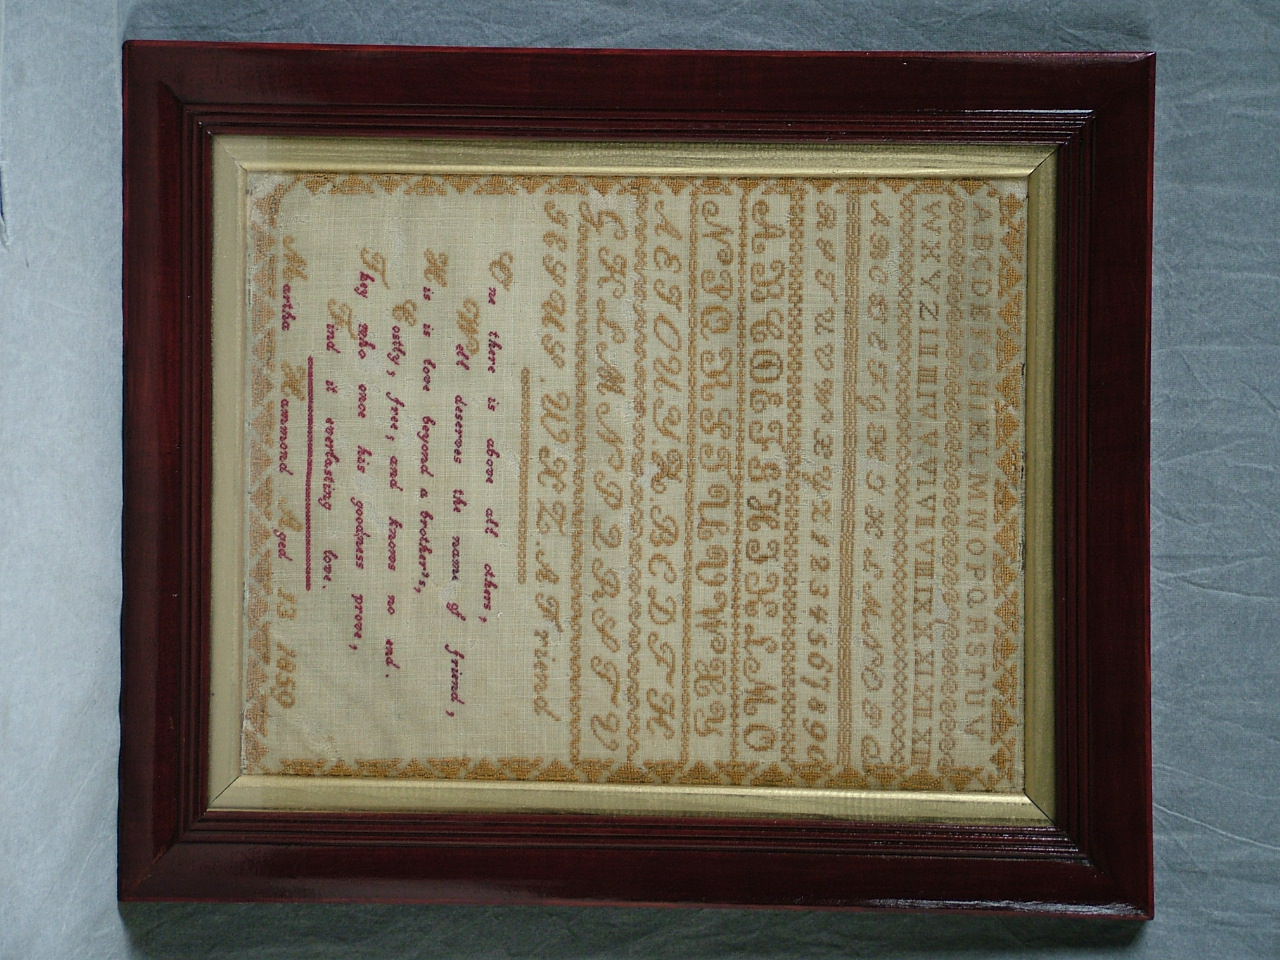 A B C D E F G H I K L M N O P Q R S T U V
W X K Y Z I II III IV V VI VII VIII IX X XI XII XIII
R S T U V W X Y Z 1 2 3 4 5 6 7 8 9 0
A B C D E F G H I J K L M O
N P Q R S T U V W X Y
A E I O U Y Z. B C D F H
G K L M N P Q R S T V
W X Z. A Friend
One there is above all others,
Well deserves the name of friend,
His is love beyond a brother's,
Costly, free, and knows no end.
They who once his goodness prove,
Find it everlasting love.
Martha Hammond Aged 13 1859